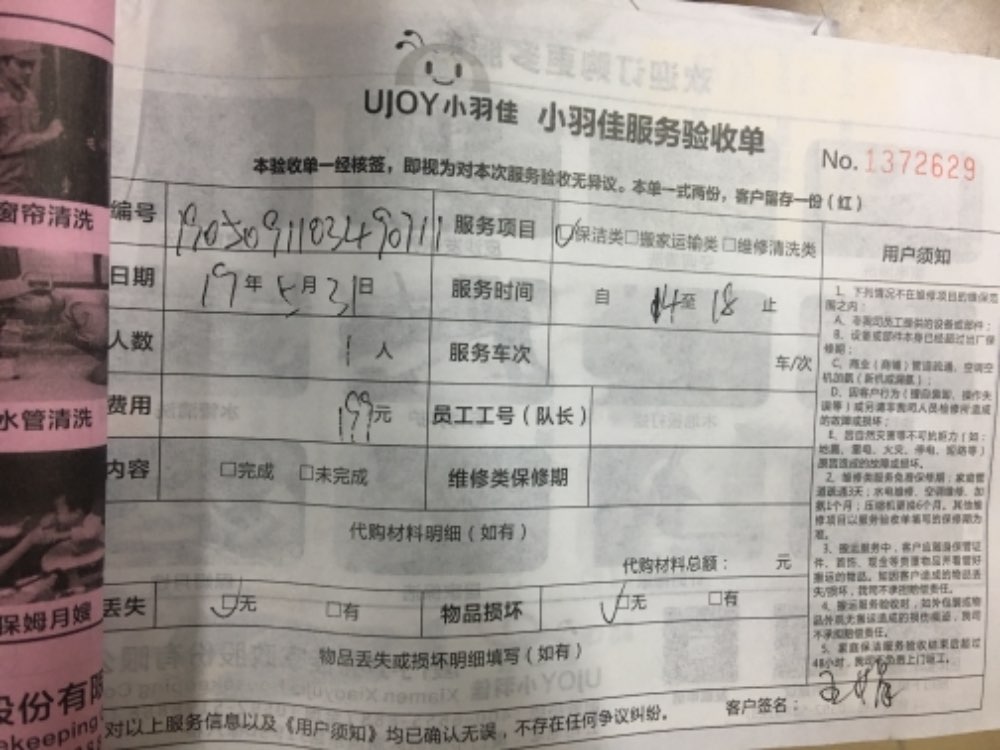 UJOY小羽佳 小羽佳服务验收单
No. 1372629
本验收单一经核签，即视为对本次服务验收无异议。本单一式两份，客户留存一份（红）
编号 服务项目 保洁类 □搬家运输类 □维修清洗类 用户须知
日期 19年5月31日 服务时间 自 14 至 18 止
人数 1 人 服务车次 车/次
费用 199元 员工工号（队长）
内容 □完成 □未完成 维修类保修期
代购材料明细（如有）
代购材料总额： 元
丢失 □无 □有 物品损坏 □无 □有
物品丢失或损坏明细填写（如有）
对以上服务信息以及《用户须知》均已确认无误，不存在任何争议纠纷。 客户签名：
1、下列情况不在维修项目的维保范
围之内：
A、非我司员工提供的设备或部件；
B、设备或部件本身已经超过出厂保
修期；
C、商业（商铺）管道疏通，空调空
D、因客户行为（擅自拆卸、操作失
的故障或损坏；
E、因自然灾害等不可抗拒力（如：
地震、雷电、火灾、停电、泥石流等）
2、维修类服务免费保修期：家庭管
道疏通3天；水电维修、空调维修、加
氨1个月；压缩机更换6个月。其他维
修项目以服务验收单填写的保修期为
准。
3、搬运服务中，客户应随身保管证
件、首饰、现金等贵重物品并看管好
搬运的物品。如因客户造成的物品丢
失/损坏，我司不承担赔偿责任。
4、搬运服务验收时，如外包装或物
品外观无搬运造成的损伤痕迹，我司
不承担赔偿责任。
5、家庭保洁服务验收结束后超过
48小时，我司不负责上门返工。
窗帘清洗
水管清洗
保姆月嫂
股份有限
ekeeping